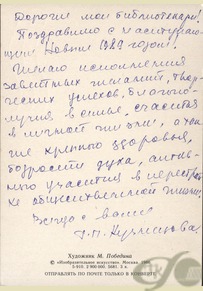 Дорогие мои библиотекари!
Поздравляю с наступаю-
щим Новым 1989 годом!
Желаю исполнения
заветных желаний, твор-
ческих успехов, благопо-
лучия в семье, счастья
в личной жизни, а так
же крепкого здоровья,
бодрости духа, актив-
ного участия в перестрой-
ке общественной жизни.
Всегда ваша
Кузнецова.
Художник М. Победина
© «Изобразительное искусство». Москва.
ОТПРАВЛЯТЬ ПО ПОЧТЕ ТОЛЬКО В КОНВЕРТЕ